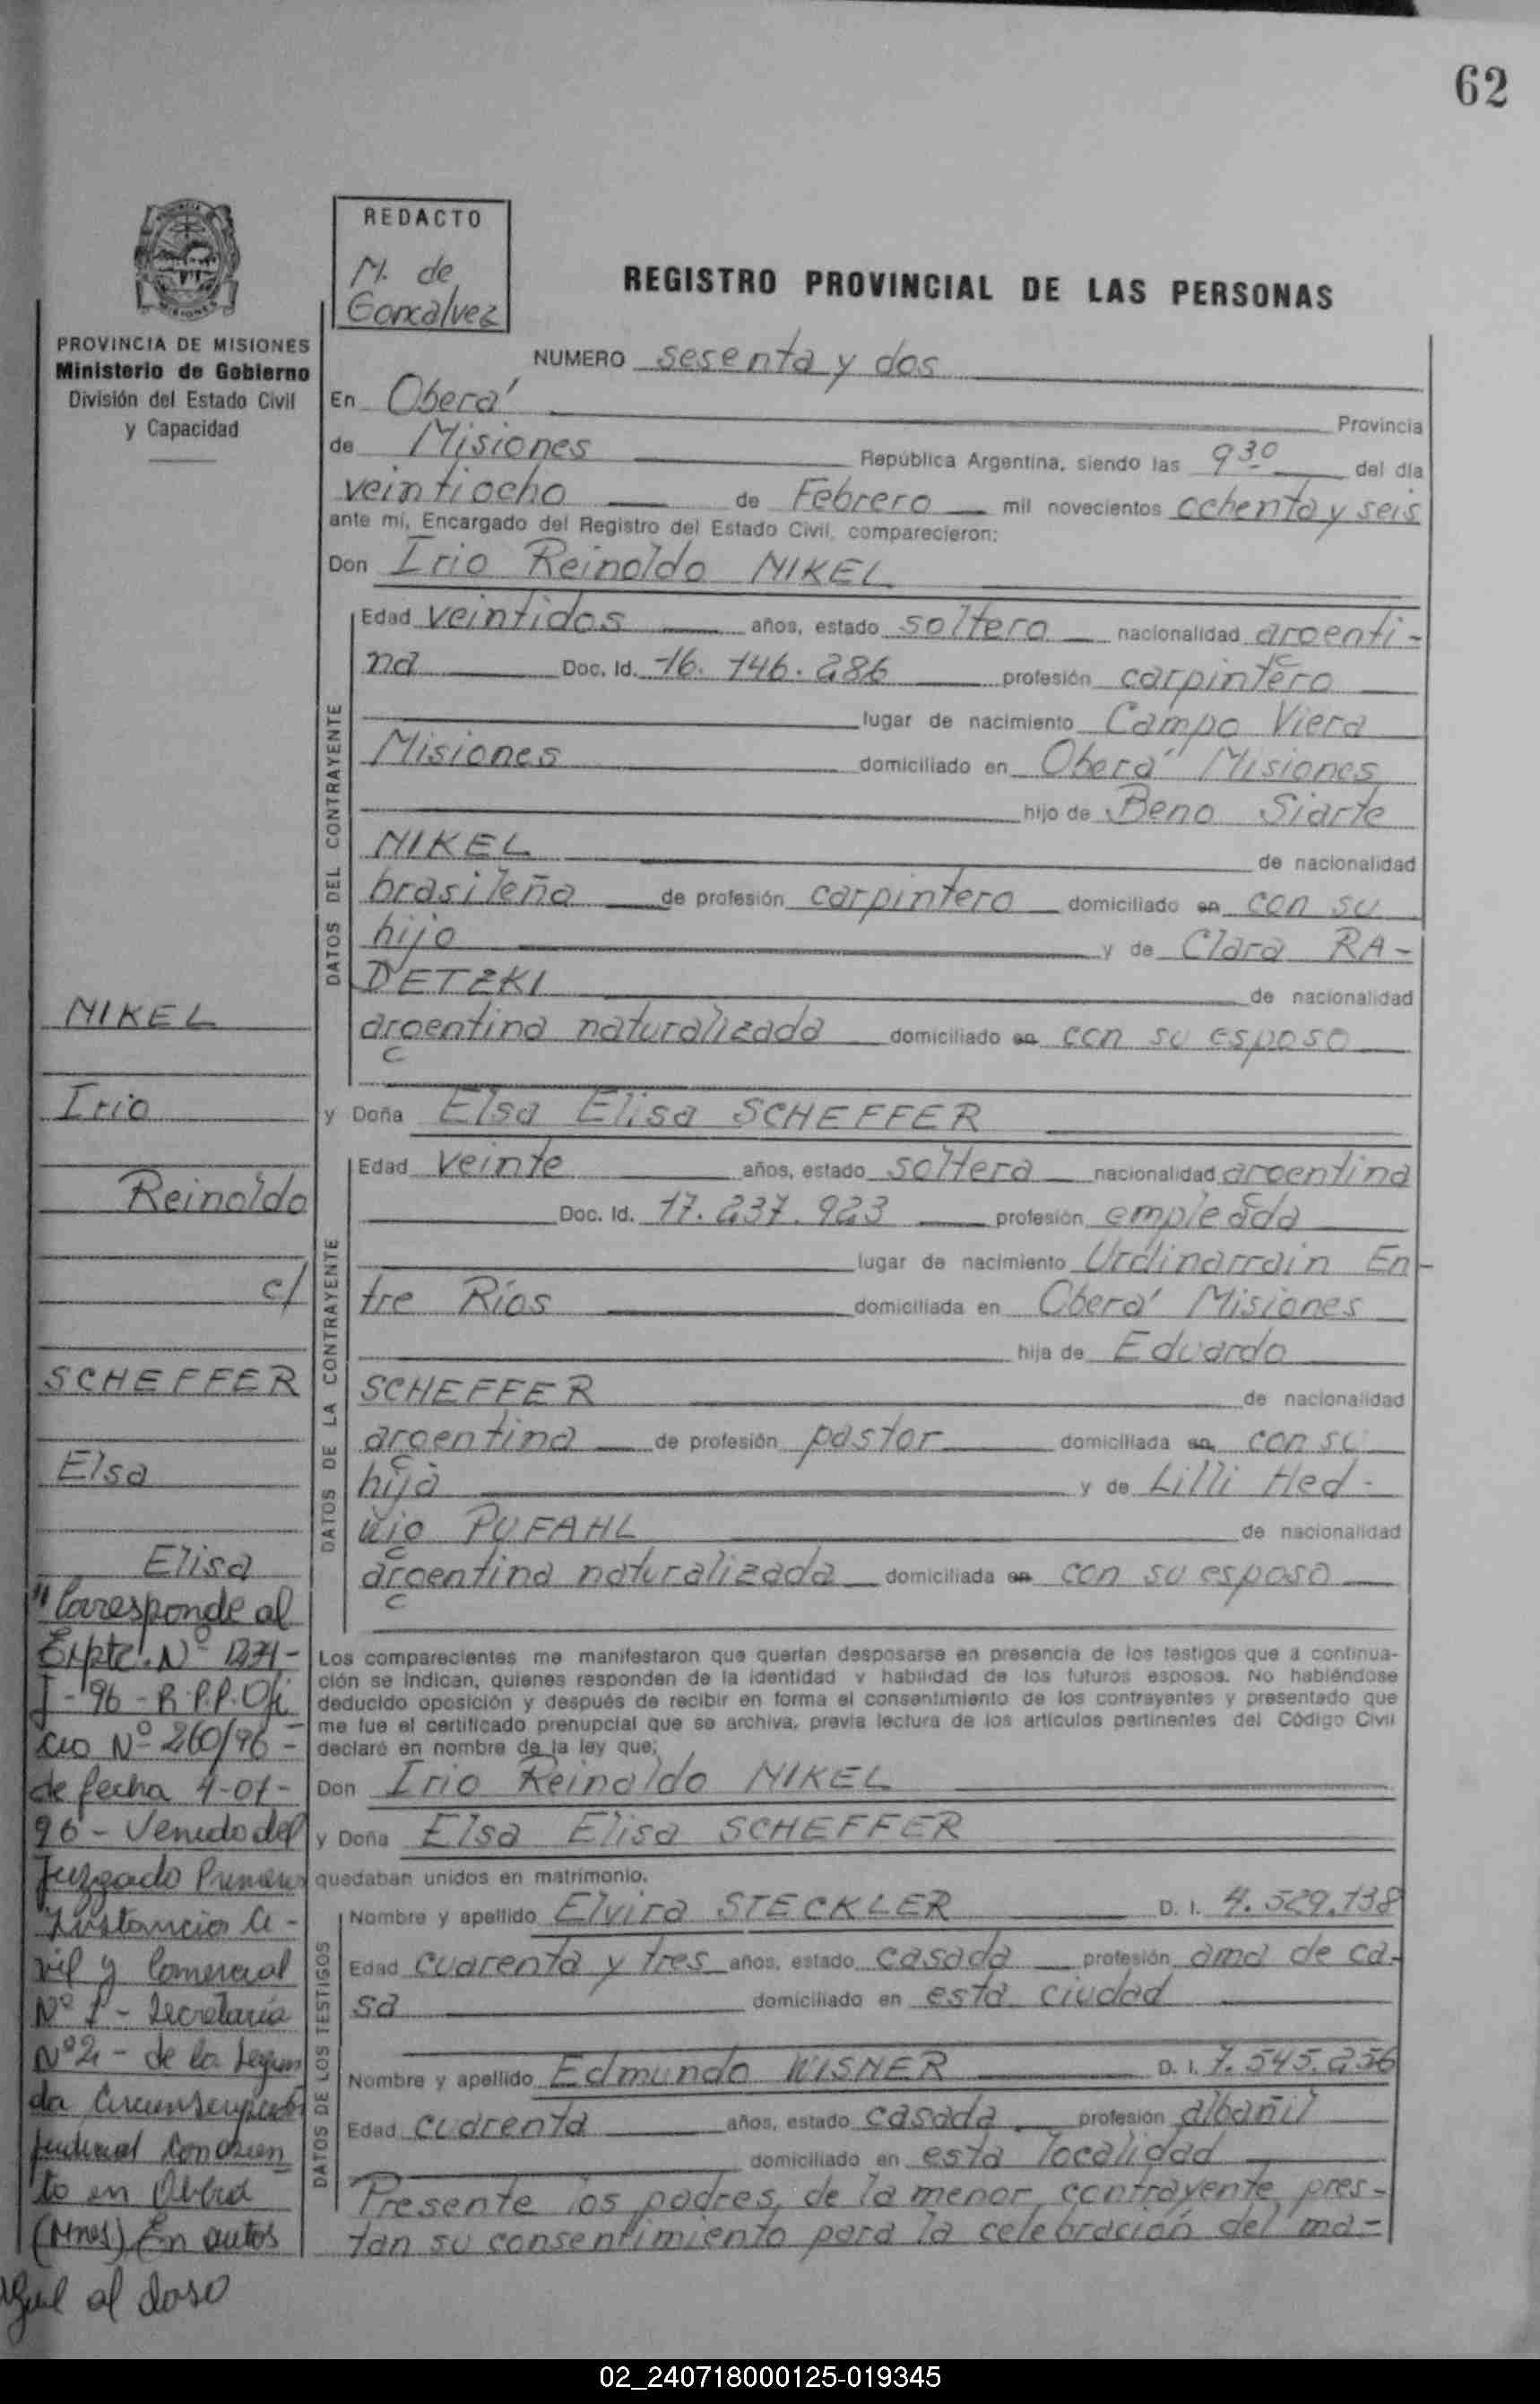 62
REDACTO
M. de
Goncalvez
REGISTRO PROVINCIAL DE LAS PERSONAS
PROVINCIA DE MISIONES
Ministerio de Gobierno
División del Estado Civil
y Capacidad
NUMERO sesenta y dos
En Oberá Provincia
de Misiones República Argentina, siendo las 9 30 del día
veintiocho de Febrero mil novecientos ochenta y seis
ante mí, Encargado del Registro del Estado Civil, comparecieron:
Don Irio Reinoldo NIKEL
DATOS DEL CONTRAYENTE
Edad veintidos años, estado soltero nacionalidad argenti-
na Doc. Id. 16.146.286 profesión carpintero
lugar de nacimiento Campo Viera
Misiones domiciliado en Oberá Misiones
hijo de Beno Siarte
NIKEL de nacionalidad
brasileña de profesión carpintero domiciliado en con su
hijo y de Clara RA-
DETZKI de nacionalidad
argentina naturalizada domiciliado en con su esposo
y Doña Elsa Elisa SCHEFFER
DATOS DE LA CONTRAYENTE
Edad veinte años, estado soltera nacionalidad argentina
Doc. Id. 17.237.923 profesión empleada
lugar de nacimiento Urdinarrain En-
tre Ríos domiciliada en Oberá Misiones
hija de Eduardo
SCHEFFER de nacionalidad
argentina de profesión pastor domiciliada en con su
hija y de Lilli Hed-
wig PUFAHL de nacionalidad
argentina naturalizada domiciliada en con su esposo
Los comparecientes me manifestaron que querían desposarse en presencia de los testigos que a continua-
ción se indican, quienes responden de la identidad y habilidad de los futuros esposos. No habiéndose
deducido oposición y después de recibir en forma el consentimiento de los contrayentes y presentado que
me fue el certificado prenupcial que se archiva, previa lectura de los artículos pertinentes del Código Civil
declaré en nombre de la ley que;
Don Irio Reinoldo NIKEL
y Doña Elsa Elisa SCHEFFER
quedaban unidos en matrimonio.
DATOS DE LOS TESTIGOS
Nombre y apellido Elvira STECKLER D. I. 4.529.138
Edad cuarenta y tres años, estado casada profesión ama de ca-
sa domiciliado en esta ciudad
Nombre y apellido Edmundo WISNER D. I. 7.545.256
Edad cuarenta años, estado casada profesión albañil
domiciliado en esta localidad
Presente los padres, de la menor contrayente, pres-
tan su consentimiento para la celebración del ma-
NIKEL
Irio
Reinoldo
c/
SCHEFFER
Elsa
Elisa
"Corresponde al
Expte. Nº 1371-
J-96-R.P.P. Ofi
cio Nº 260/96-
de fecha 4-01-
96- Venido del
Juzgado Primera
Instancia Ci-
vil y Comercial
Nº 1- Secretaría
Nº 2- de la Segun
da Circunscripción
judicial con asien
to en Oberá
(Mnes) En autos
sigue al dorso
02_240718000125-019345